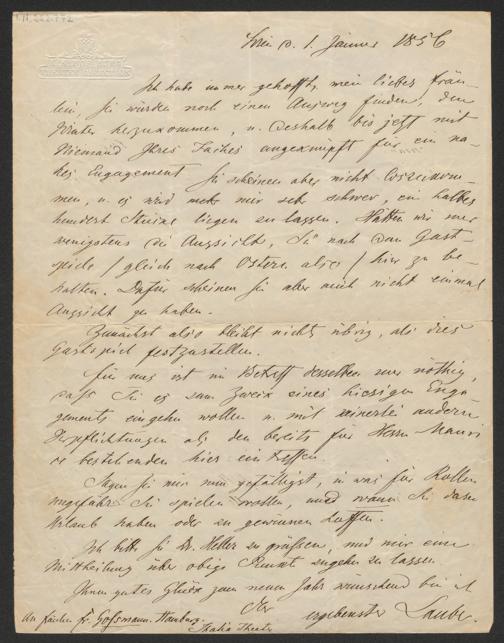 Wien d. 1. Jänner 1856
Ich habe immer gehofft, mein liebes Fräu-
lein, Sie würden noch einen Ausweg finden, den
Winter herzukommen, u. deshalb bis jetzt mit
Niemand Ihres Faches angeknüpft für ein na-
hes Engagement. Sie scheinen aber nicht loszukom-
men, u. es wird mir sehr schwer, ein halbes
hundert Stücke liegen zu lassen. Hätten wir nur
wenigstens die Aussicht, Sie nach dem Gast-
spiele /gleich nach Ostern also/ hier zu be-
halten. Dafür scheinen Sie aber auch nicht einmal
Aussicht zu haben.
Zunächst also bleibt nichts übrig, als dies
Gastspiel festzustellen.
Für uns ist im Betreff desselben nur nöthig,
daß Sie es zum Zweck eines hiesigen Enga-
gements eingehen wollen u. mit keinerlei andern
Verpflichtungen als den bereits für Herrn Maurice
bestehenden hier eintreffen.
Sagen Sie mir nun gefälligst, in was für Rollen
ungefähr Sie spielen wollen, und wann Sie dazu
Urlaub haben oder zu gewinnen hoffen.
Ich bitte Sie Dr. Heller zu grüßen, und mir eine
Mittheilung über obige Punkte zugehen zu lassen.
Ihnen gutes Glück zum neuen Jahr wünschend bin ich
Ihr
ergebenster Laube.
An Fräulein Fr. Goßmann. Hamburg.
Thalia Theater